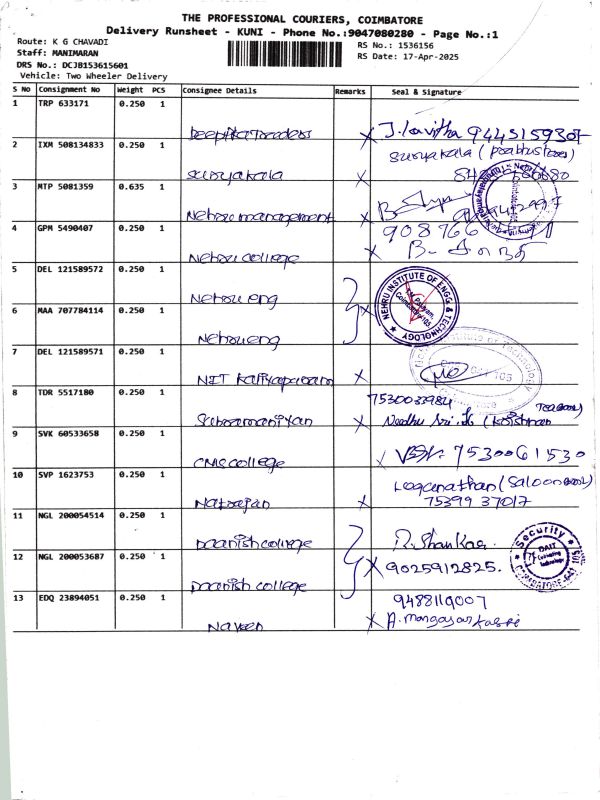 THE PROFESSIONAL COURIERS, COIMBATORE
Delivery Runsheet - KUNI - Phone No.:9047080280 - Page No.:1
Route: K G CHAVADI
RS No.: 1536156
Staff: MANIMARAN
RS Date: 17-Apr-2025
DRS No.: DCJB153615601
Vehicle: Two Wheeler Delivery
S No Consignment No Weight PCS Consignee Details Remarks Seal & Signature
1 TRP 633171 0.250 1
Deepika Traders X J. Kavitha
2 IXM 508134833 0.250 1 Suryakala (
Suryakala X
3 MTP 5081359 0.635 1
Nehru management X
4 GPM 5490407 0.250 1
Nehru college X B-
5 DEL 121589572 0.250 1
Nehru eng
NEHRU INSTITUTE OF ENGG & TECHNOLOGY
6 MAA 707784114 0.250 1
Nehru eng X
7 DEL 121589571 0.250 1
NIT Kaliyapuram X
8 TDR 5517180 0.250 1 7530033984
Subramaniyan X Needhu Sri.
9 SVK 60533658 0.250 1
CMS college X 7530061530
10 SVP 1623753 0.250 1 Loganathan (Saloon
Natrajan X 75399 37017
11 NGL 200054514 0.250 1
Daanish college R. Shankar.
Security
12 NGL 200053687 0.250 1
Daanish college X 9025912825.
13 EDQ 23894051 0.250 1 9488119007
Naveen X A. Mangayarkarsi